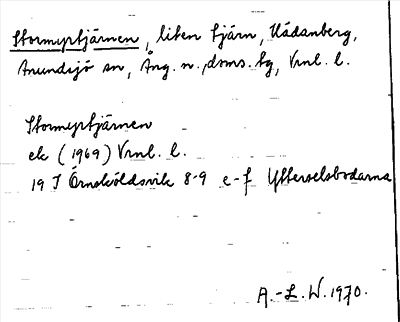 Stormyrtjärnen, liten tjärn, Kådanberg,
Anundsjö sn, Ång. n., doms. tg, Vrnl. l.
Stormyrtjärnen
ek (1969) Vrnl. l.
19 I Örnsköldsvik 8-9 e-f Ytterselsbodarna
A.-L. W. 1970.